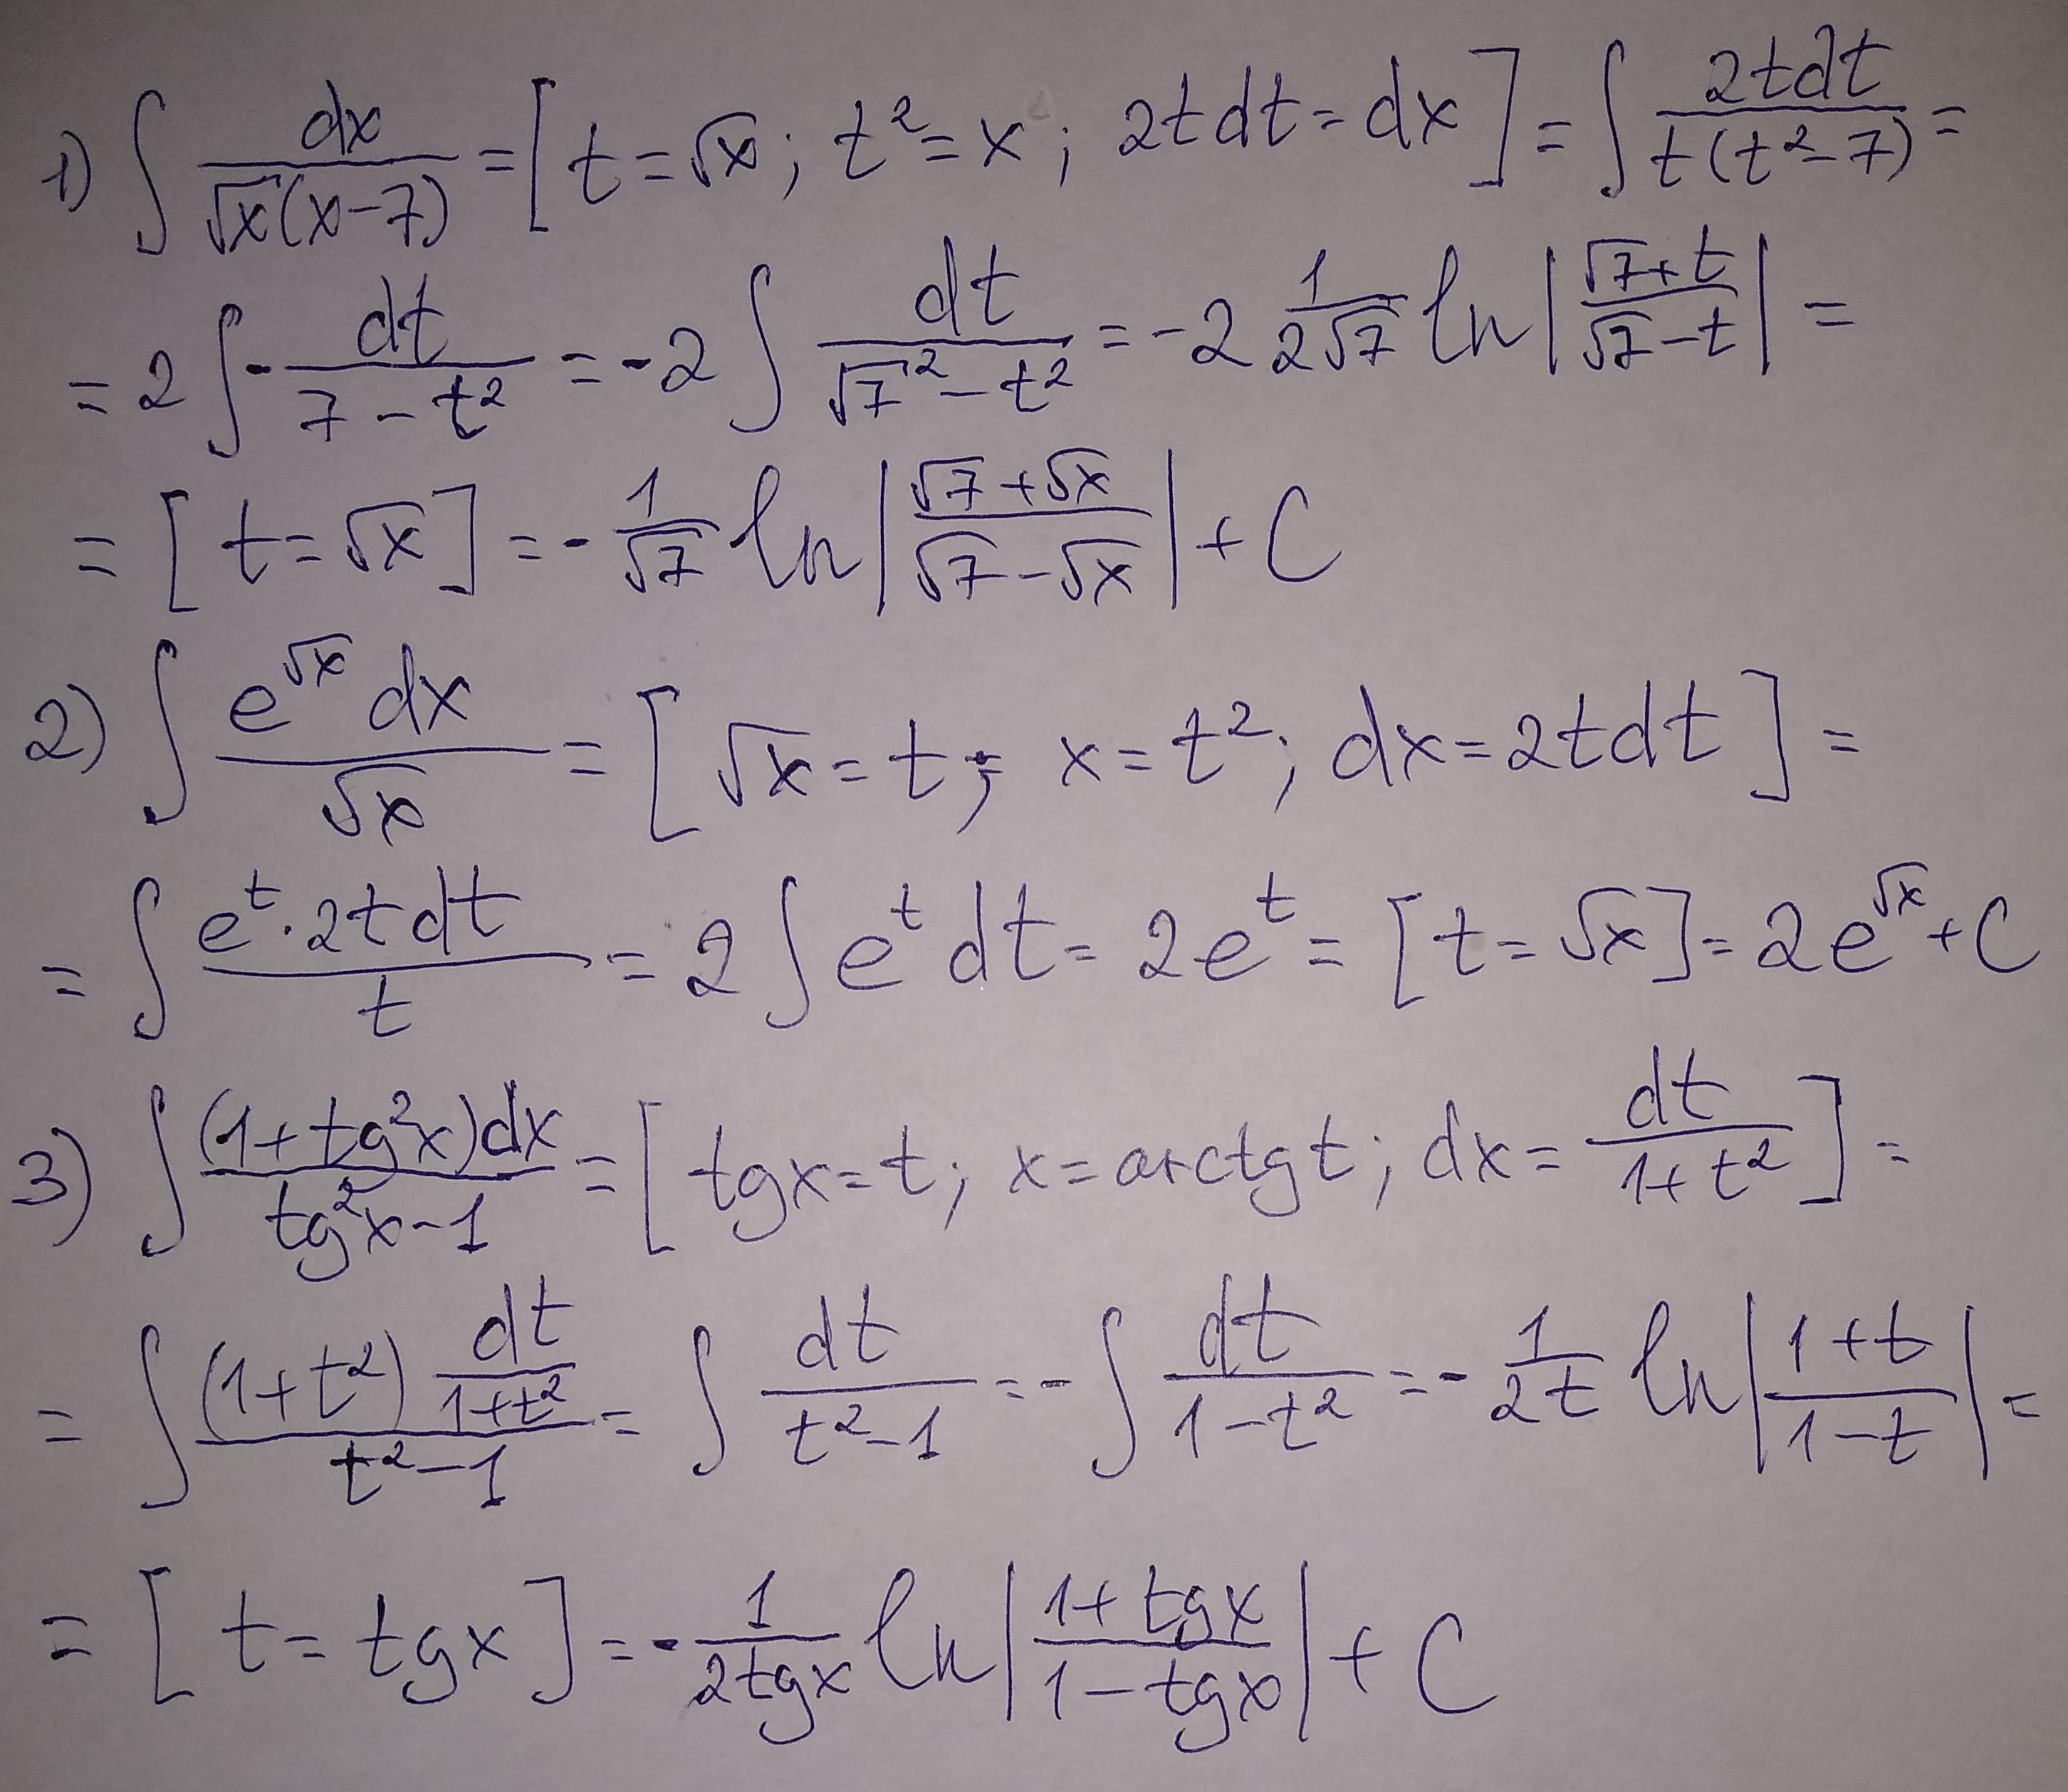 1) ∫ dx/(√x(x-7)) = [t=√x; t²=x; 2tdt=dx] = ∫ 2tdt/(t(t²-7)) =
= 2∫ - dt/(7-t²) = -2∫ dt/(√7²-t²) = -2 1/(2√7) ln|(√7+t)/(√7-t)| =
= [t=√x] = - 1/√7 ln|(√7+√x)/(√7-√x)| + C
2) ∫ e^√x dx/√x = [√x=t; x=t²; dx=2tdt] =
= ∫ e^t·2tdt/t = 2∫e^t dt = 2e^t = [t=√x] = 2e^√x + C
3) ∫ (1+tg²x)dx/(tg²x-1) = [tgx=t; x=arctgt; dx=dt/(1+t²)] =
= ∫ (1+t²) dt/(1+t²)/(t²-1) = ∫ dt/(t²-1) = -∫ dt/(1-t²) = - 1/(2t) ln|(1+t)/(1-t)| =
= [t=tgx] = - 1/(2tgx) ln|(1+tgx)/(1-tgx)| + C